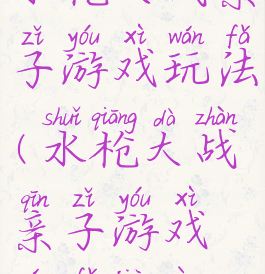 zǐ yóu xì wán fǎ
子游戏玩法
shuǐ qiāng dà zhàn
(水枪大战
qīn zǐ yóu xì
亲子游戏